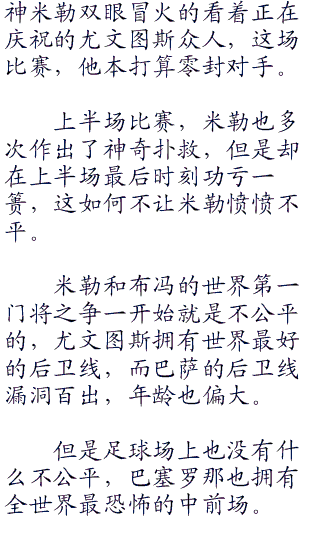 神米勒双眼冒火的看着正在
庆祝的尤文图斯众人，这场
比赛，他本打算零封对手。
上半场比赛，米勒也多
次作出了神奇扑救，但是却
在上半场最后时刻功亏一
篑，这如何不让米勒愤愤不
平。
米勒和布冯的世界第一
门将之争一开始就是不公平
的，尤文图斯拥有世界最好
的后卫线，而巴萨的后卫线
漏洞百出，年龄也偏大。
但是足球场上也没有什
么不公平，巴塞罗那也拥有
全世界最恐怖的中前场。